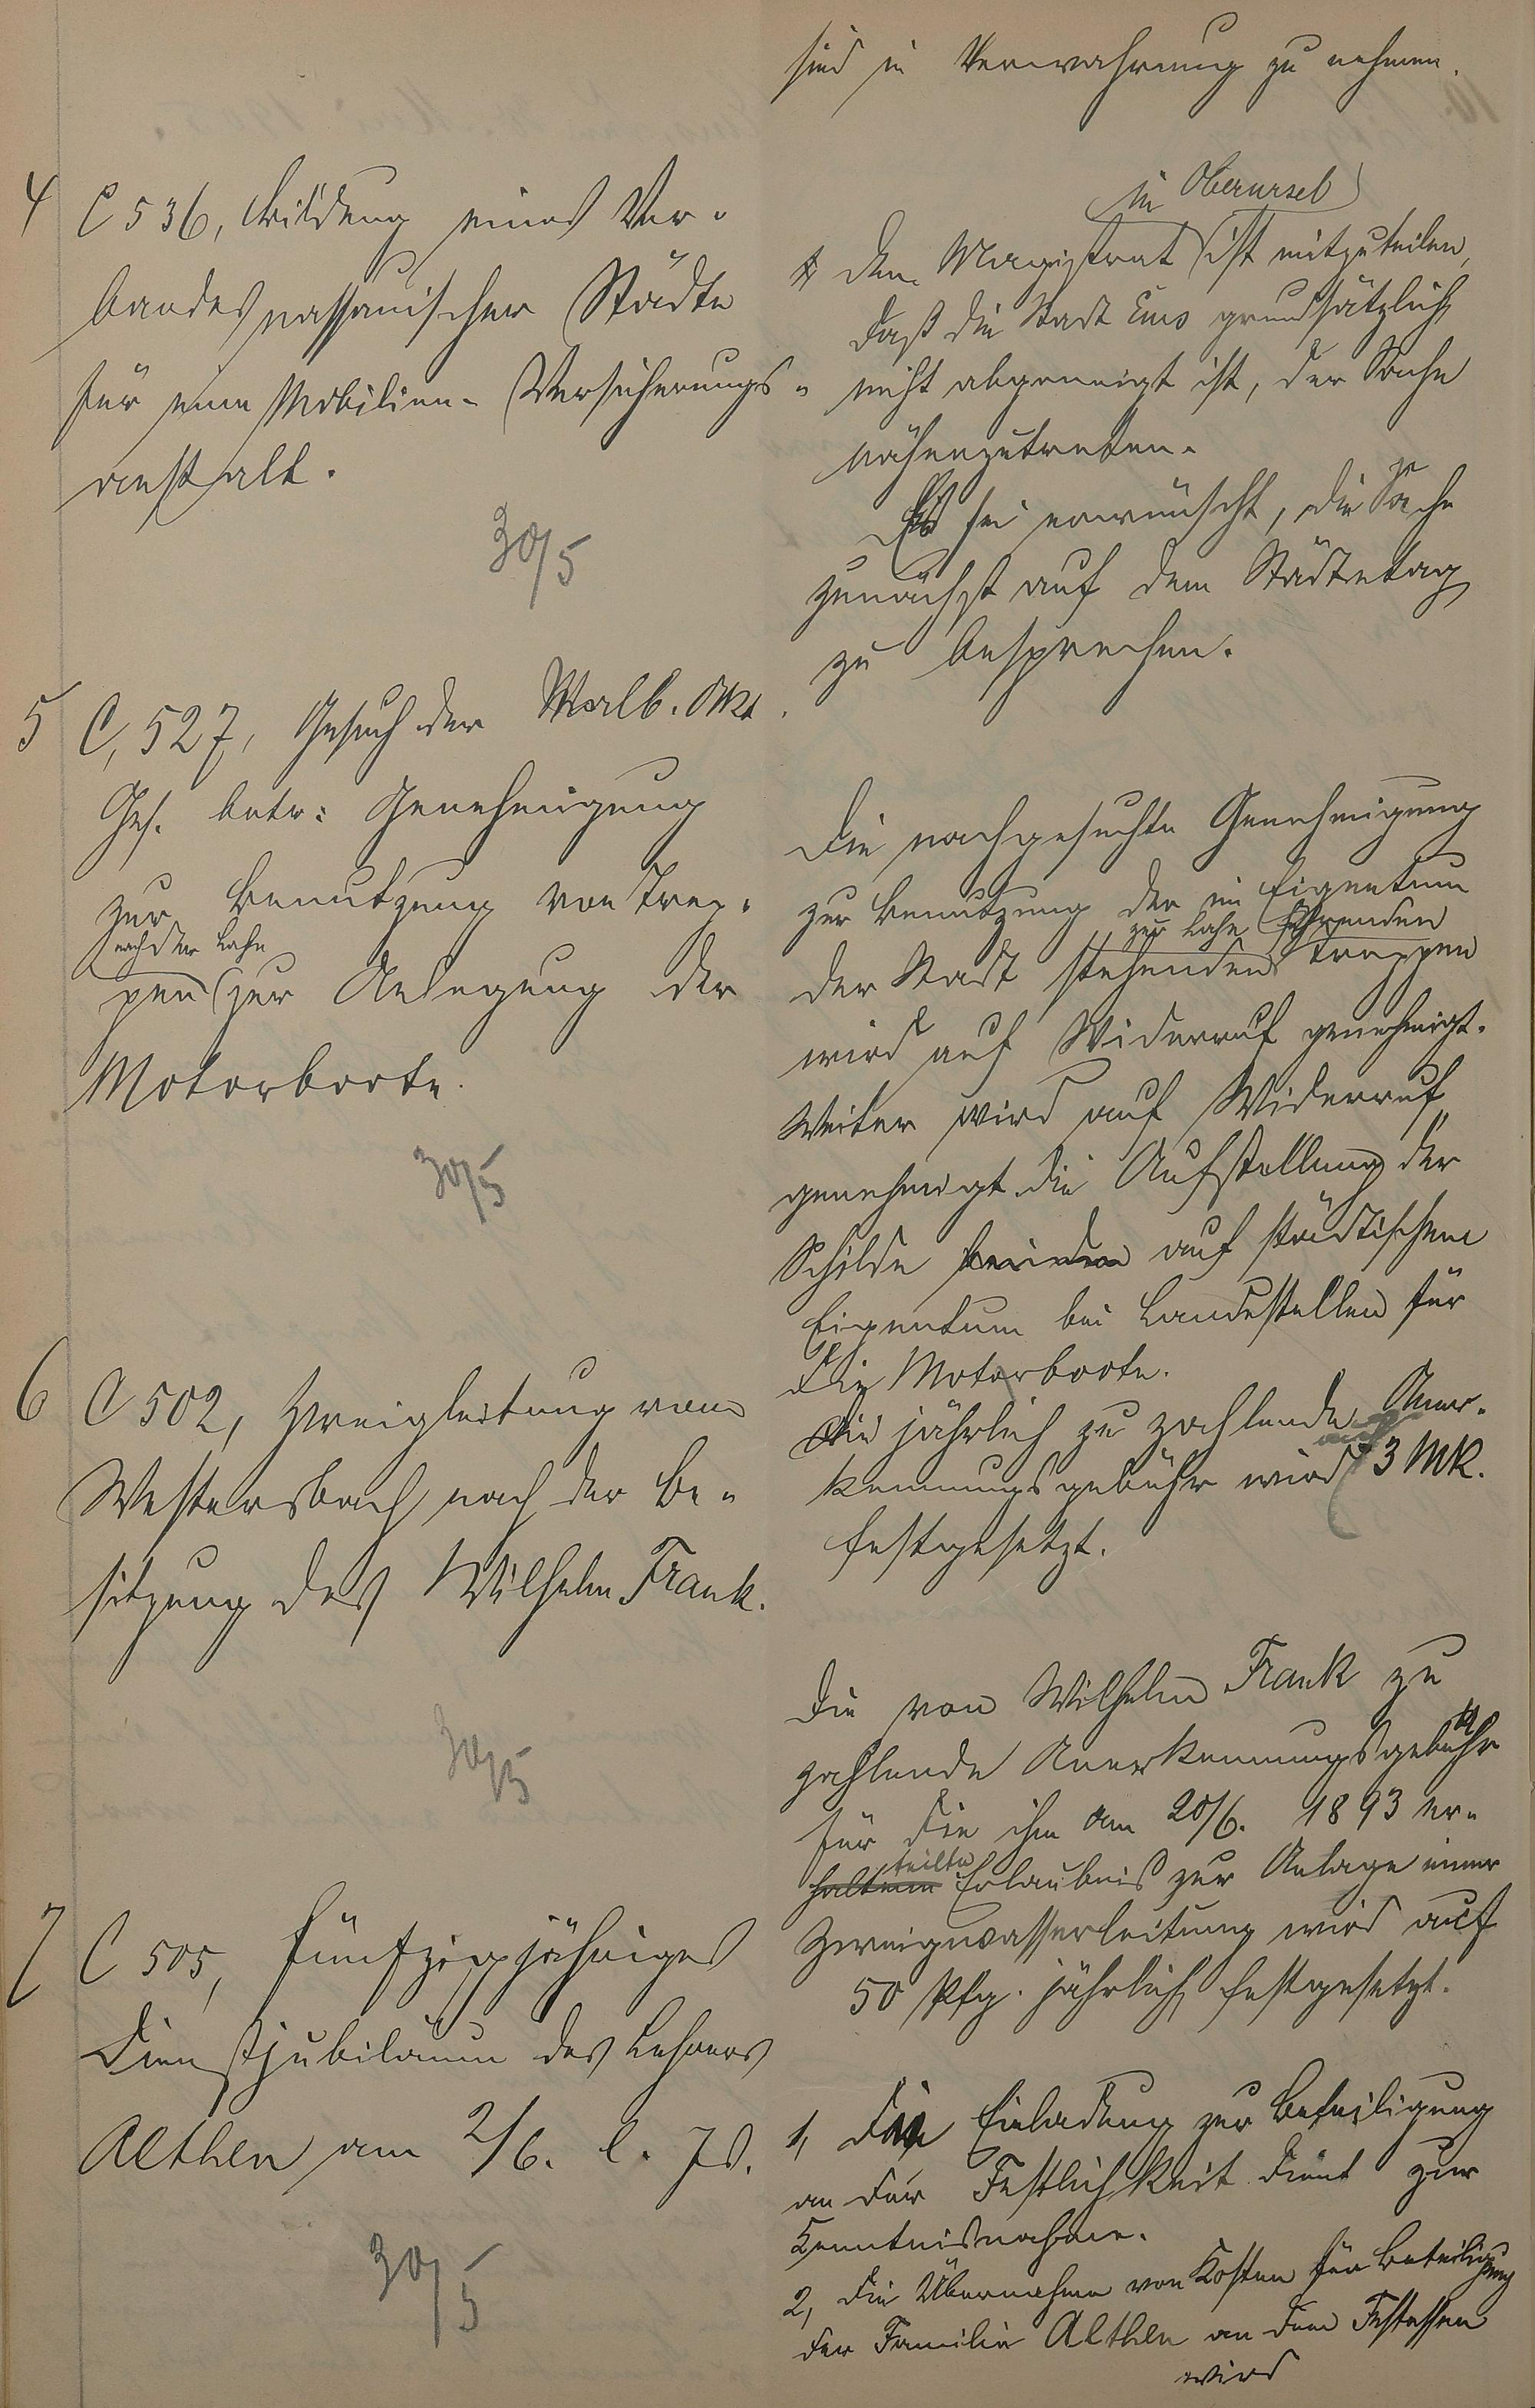 sind in Verwahrung zu nehmen.
4 C 536, Bildung eines Ver-
bandes nassauischer Städte
für eine Mobilien-Versicherungs-
anstalt.
30/5
in Oberursel
Dem Magistrat ist mitzuteilen,
daß die Stadt Ems grundsätzlich
nicht abgeneigt ist, der Sache
näherzutreten.
Es sei erwünscht, die Sache
zunächst auf dem Städtetag
zu besprechen.
5 C, 527, Gesuch der Malb. Akt.
Ges. betr: Genehmigung
zur Benutzung von Trep-
nach der Lahn
pen zur Anlegung der
Motorboote.
30/5
Die nachgesuchte Genehmigung
zur Benutzung der im Eigentum
zur Lahn führenden
der Stadt stehenden Treppen
wird auf Widerruf genehmigt.
Weiter wird auf Widerruf
genehmigt die Aufstellung der
Schilde auf städtischem
Eigentum bei Landestellen für
die Motorboote.
Die jährlich zu zahlende Aner-
auf
kennungsgebühr wird 3 Mk.
festgesetzt.
6 C 502, Zweigleitung vom
Westersbach nach der Be-
sitzung des Wilhelm Frank.
30/5
Die von Wilhelm Frank zu
zahlende Anerkennungsgebühr
für die ihm am 20/6. 1893 er-
teilte
haltene Erlaubnis zur Anlage einer
Zweigwasserleitung wird auf
50 Pfg. jährlich festgesetzt.
7 C 505, Fünfzigjähriges
Dienstjubiläum des Lehrers
Althen am 2/6. l. Js.
30/5
1, Die Einladung zur Beteiligung
an der Festlichkeit dient zur
Kenntnisnahme.
2, Die Übernahme von Kosten für Beteiligung
der Familie Althen an dem Festessen
wird